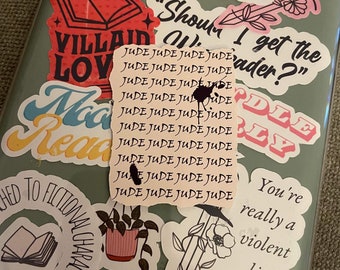 VILLAIN
LOVER
"Should I get the
W
eader?"
JUDE JUDE JUDE JUDE
JUDE JUDE JUDE JUDE
JUDE JUDE JUDE JUDE
JUDE JUDE JUDE JUDE
JUDE JUDE JUDE JUDE
JUDE JUDE JUDE JUDE
JUDE JUDE JUDE JUDE
JUDE JUDE JUDE JUDE
JUDE JUDE JUDE JUDE
JUDE JUDE JUDE JUDE
Moo
Reade
DLE
RLY
CHED TO FICTIONAL CHARA
You're
really a
violent